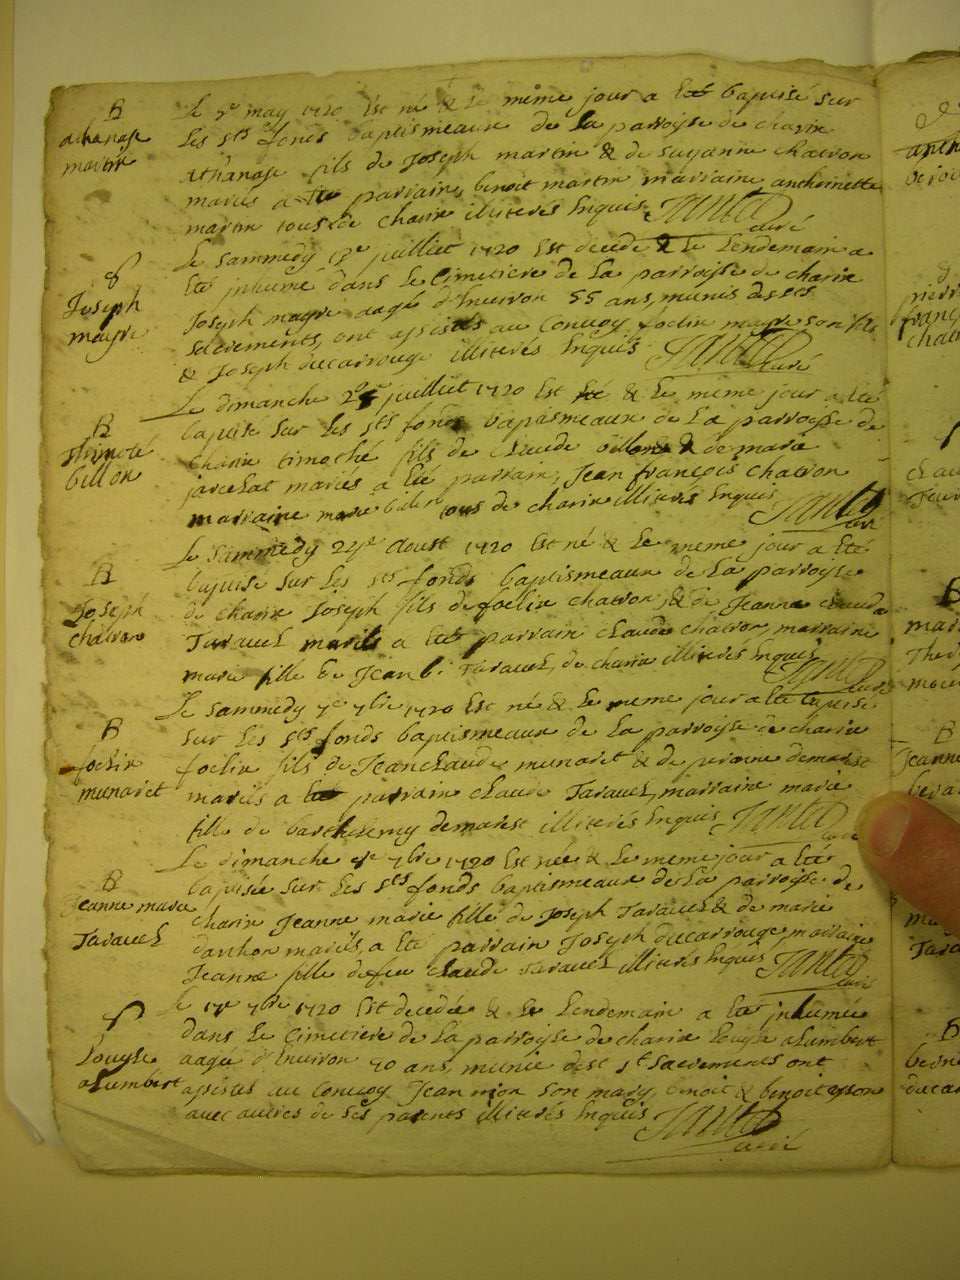 B
athanase
martin
Le 5e may 1720 Est né & Le même jour a Eté baptisé sur
Les sts fonds baptismeaux de La parroisse de charix
Athanase fils de Joseph martin & de suzanne chatron
mariés a Eté parrain, benoit martin marraine anthoinette
martin tous de charix illiterés Enquis
curé
S
Joseph
maÿre
Le sammedy juilliet 1720 Est decedé & Le Lendemain a
Eté jnhumé dans Le Cimetiere de La parroisse de charix
Joseph mayre aagé d'Environ 55 ans, munis des sts
sacrements, ont assistés au Convoy foelix mayre son fils
& Joseph ducarrouge illiterés Enquis
curé
B
thimoté
billon
Le dimanche juilliet 1720 Est né & Le meme jour a Eté
baptisé sur Les sts fonds baptismeaux de La parroisse de
charix timothé fils de Claude billon & de marie
jarcelat mariés a Eté parrain, Jean françois chatron
marraine marie tous de charix illiterés Enquis
curé
B
Joseph
chatron
Le sammedy 24e Aoust 1720 Est né & Le meme jour a Eté
baptisé sur Les sts fonds baptismeaux de La parroisse
de charix Joseph fils de foelix chatron, & de Jeanne claude
Taravel mariés a Eté parrain claude chatron, marraine
marie fille de Jean b. Taravel, de charix illiterés Enquis
curé
B
foelix
munaret
Le sammedy 7e 7bre 1720 Est né & Le meme jour a Eté baptisé
sur Les sts fonds baptismeaux de La parroisse de charix
foelix fils de Jean Claude munaret & de peronne demarest
mariés a Eté parrain claude Taravel, marraine marie
fille de barthelemy demarest illiterés Enquis
curé
B
Jeanne marie
Taravel
Le dimanche 7bre 1720 Est née & Le meme jour a Eté
baptisée sur Les sts fonds baptismeaux de La parroisse de
charix Jeanne marie fille de Joseph Taravel & de marie
danthon mariés, a Eté parrain Joseph ducarrouge, marraine
Jeanne fille de feu claude Taravel illiterés Enquis
curé
S
Louyse
alumbert
Le 17e 7bre 1720 Est decedée & Le Lendemain a Eté jnhumée
dans Le Cimetiere de La parroisse de charix Louyse alumbert
aagée d'Environ 70 ans, munie des sts sacrements ont
assistés au Convoy Jean son mary, benoit & benoit
avec autres de ses parents illiterés Enquis
curé